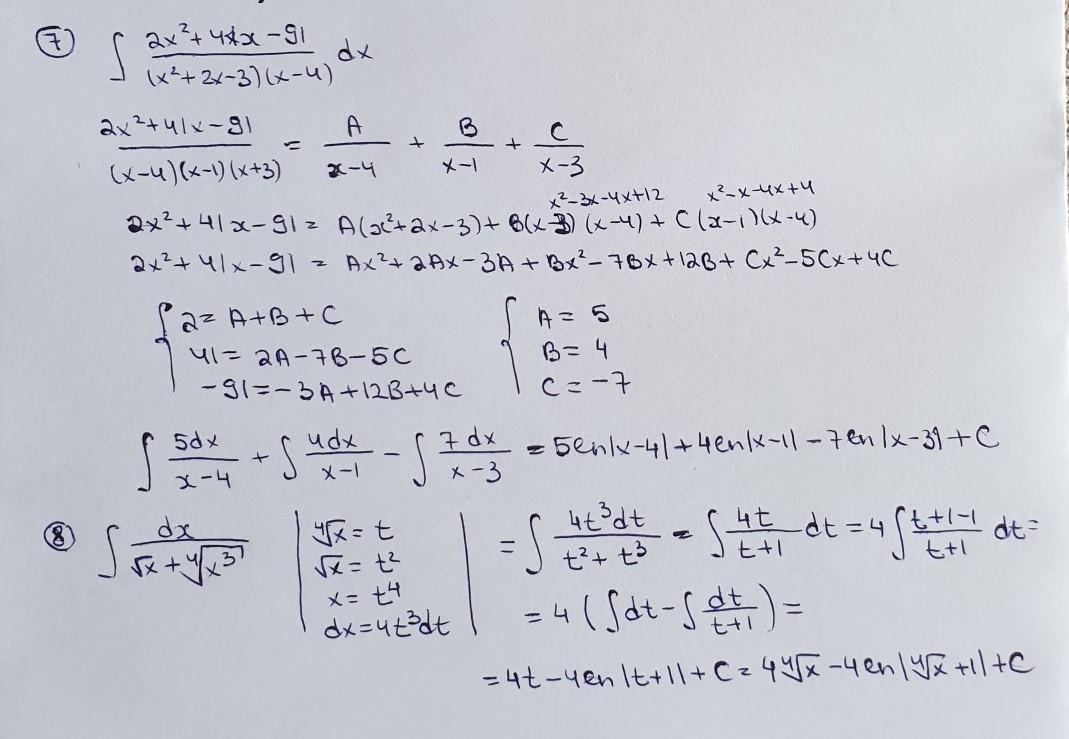 ⑦ ∫ (2x²+41x-91)/((x²+2x-3)(x-4)) dx
(2x²+41x-91)/((x-4)(x-1)(x+3)) = A/(x-4) + B/(x-1) + C/(x-3)
x²-3x-4x+12 x²-x-4x+4
2x²+41x-91 = A(x²+2x-3)+B(x-3)(x-4)+C(x-1)(x-4)
2x²+41x-91 = Ax²+2Ax-3A+Bx²-7Bx+12B+Cx²-5Cx+4C
{ 2=A+B+C { A=5
41=2A-7B-5C B=4
-91=-3A+12B+4C C=-7
∫ 5dx/(x-4) + ∫ 4dx/(x-1) - ∫ 7dx/(x-3) = 5ln|x-4|+4ln|x-1|-7ln|x-3|+C
⑧ ∫ dx/(√x+∜x³) | ∜x=t | = ∫ 4t³dt/(t²+t³) = ∫ 4t/(t+1) dt = 4∫ (t+1-1)/(t+1) dt=
√x=t²
x=t⁴ = 4(∫dt-∫ dt/(t+1))=
dx=4t³dt
=4t-4ln|t+1|+C=4∜x-4ln|∜x+1|+C